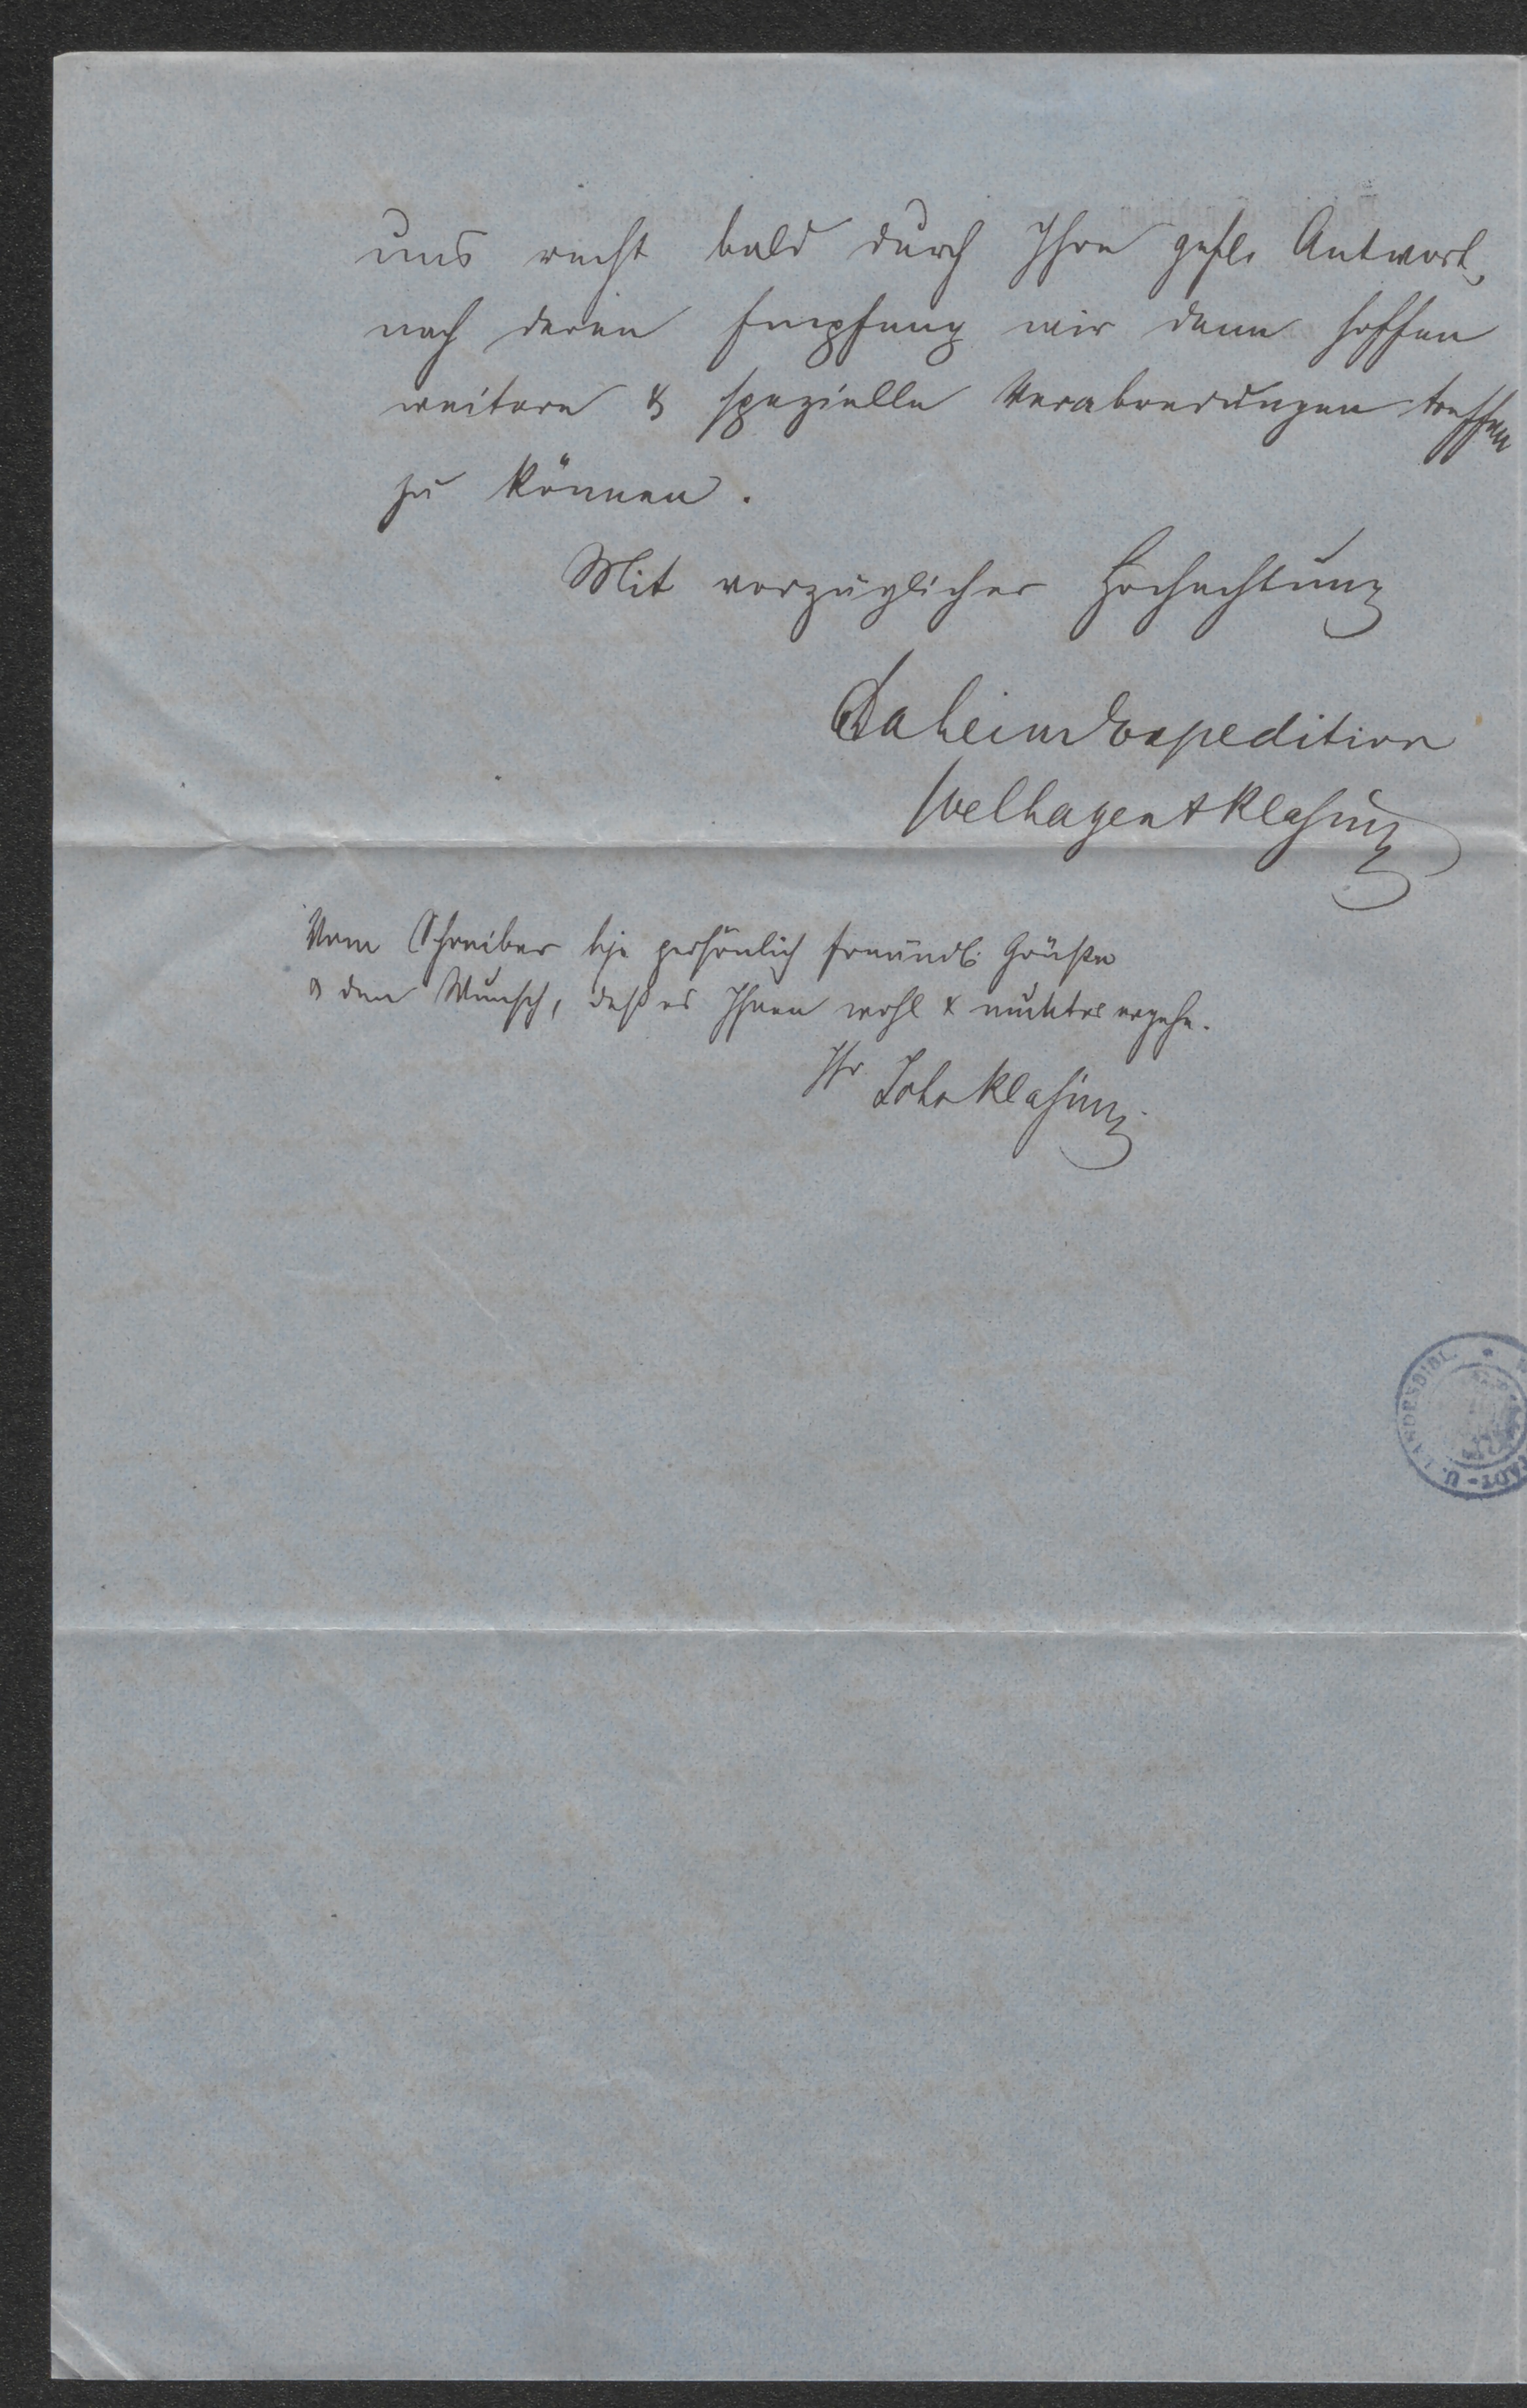 uns recht bald durch Ihre gefl. Antwort,
nach deren Empfang wir dann hoffen
weitere & spezielle Verabredungen treffen
zu können.
Mit vorzüglicher Hochachtung
Daheim Expedition
Velhagen & Klasing
Vom Schreiber persönlich freundl. Grüße
& den Wunsch, daß es Ihnen wohl & ergehe.
Ihr Joh Klasing.
LANDESBIBL.